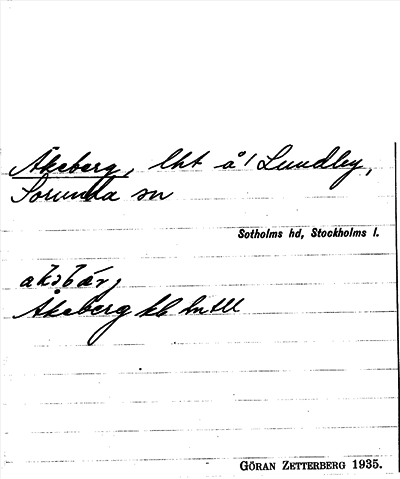 Åkeberg, lht å/ Lundby,
Sorunda sn
Sotholms hd, Stockholms l.
Åkeberg kb
GÖRAN ZETTERBERG 1935.